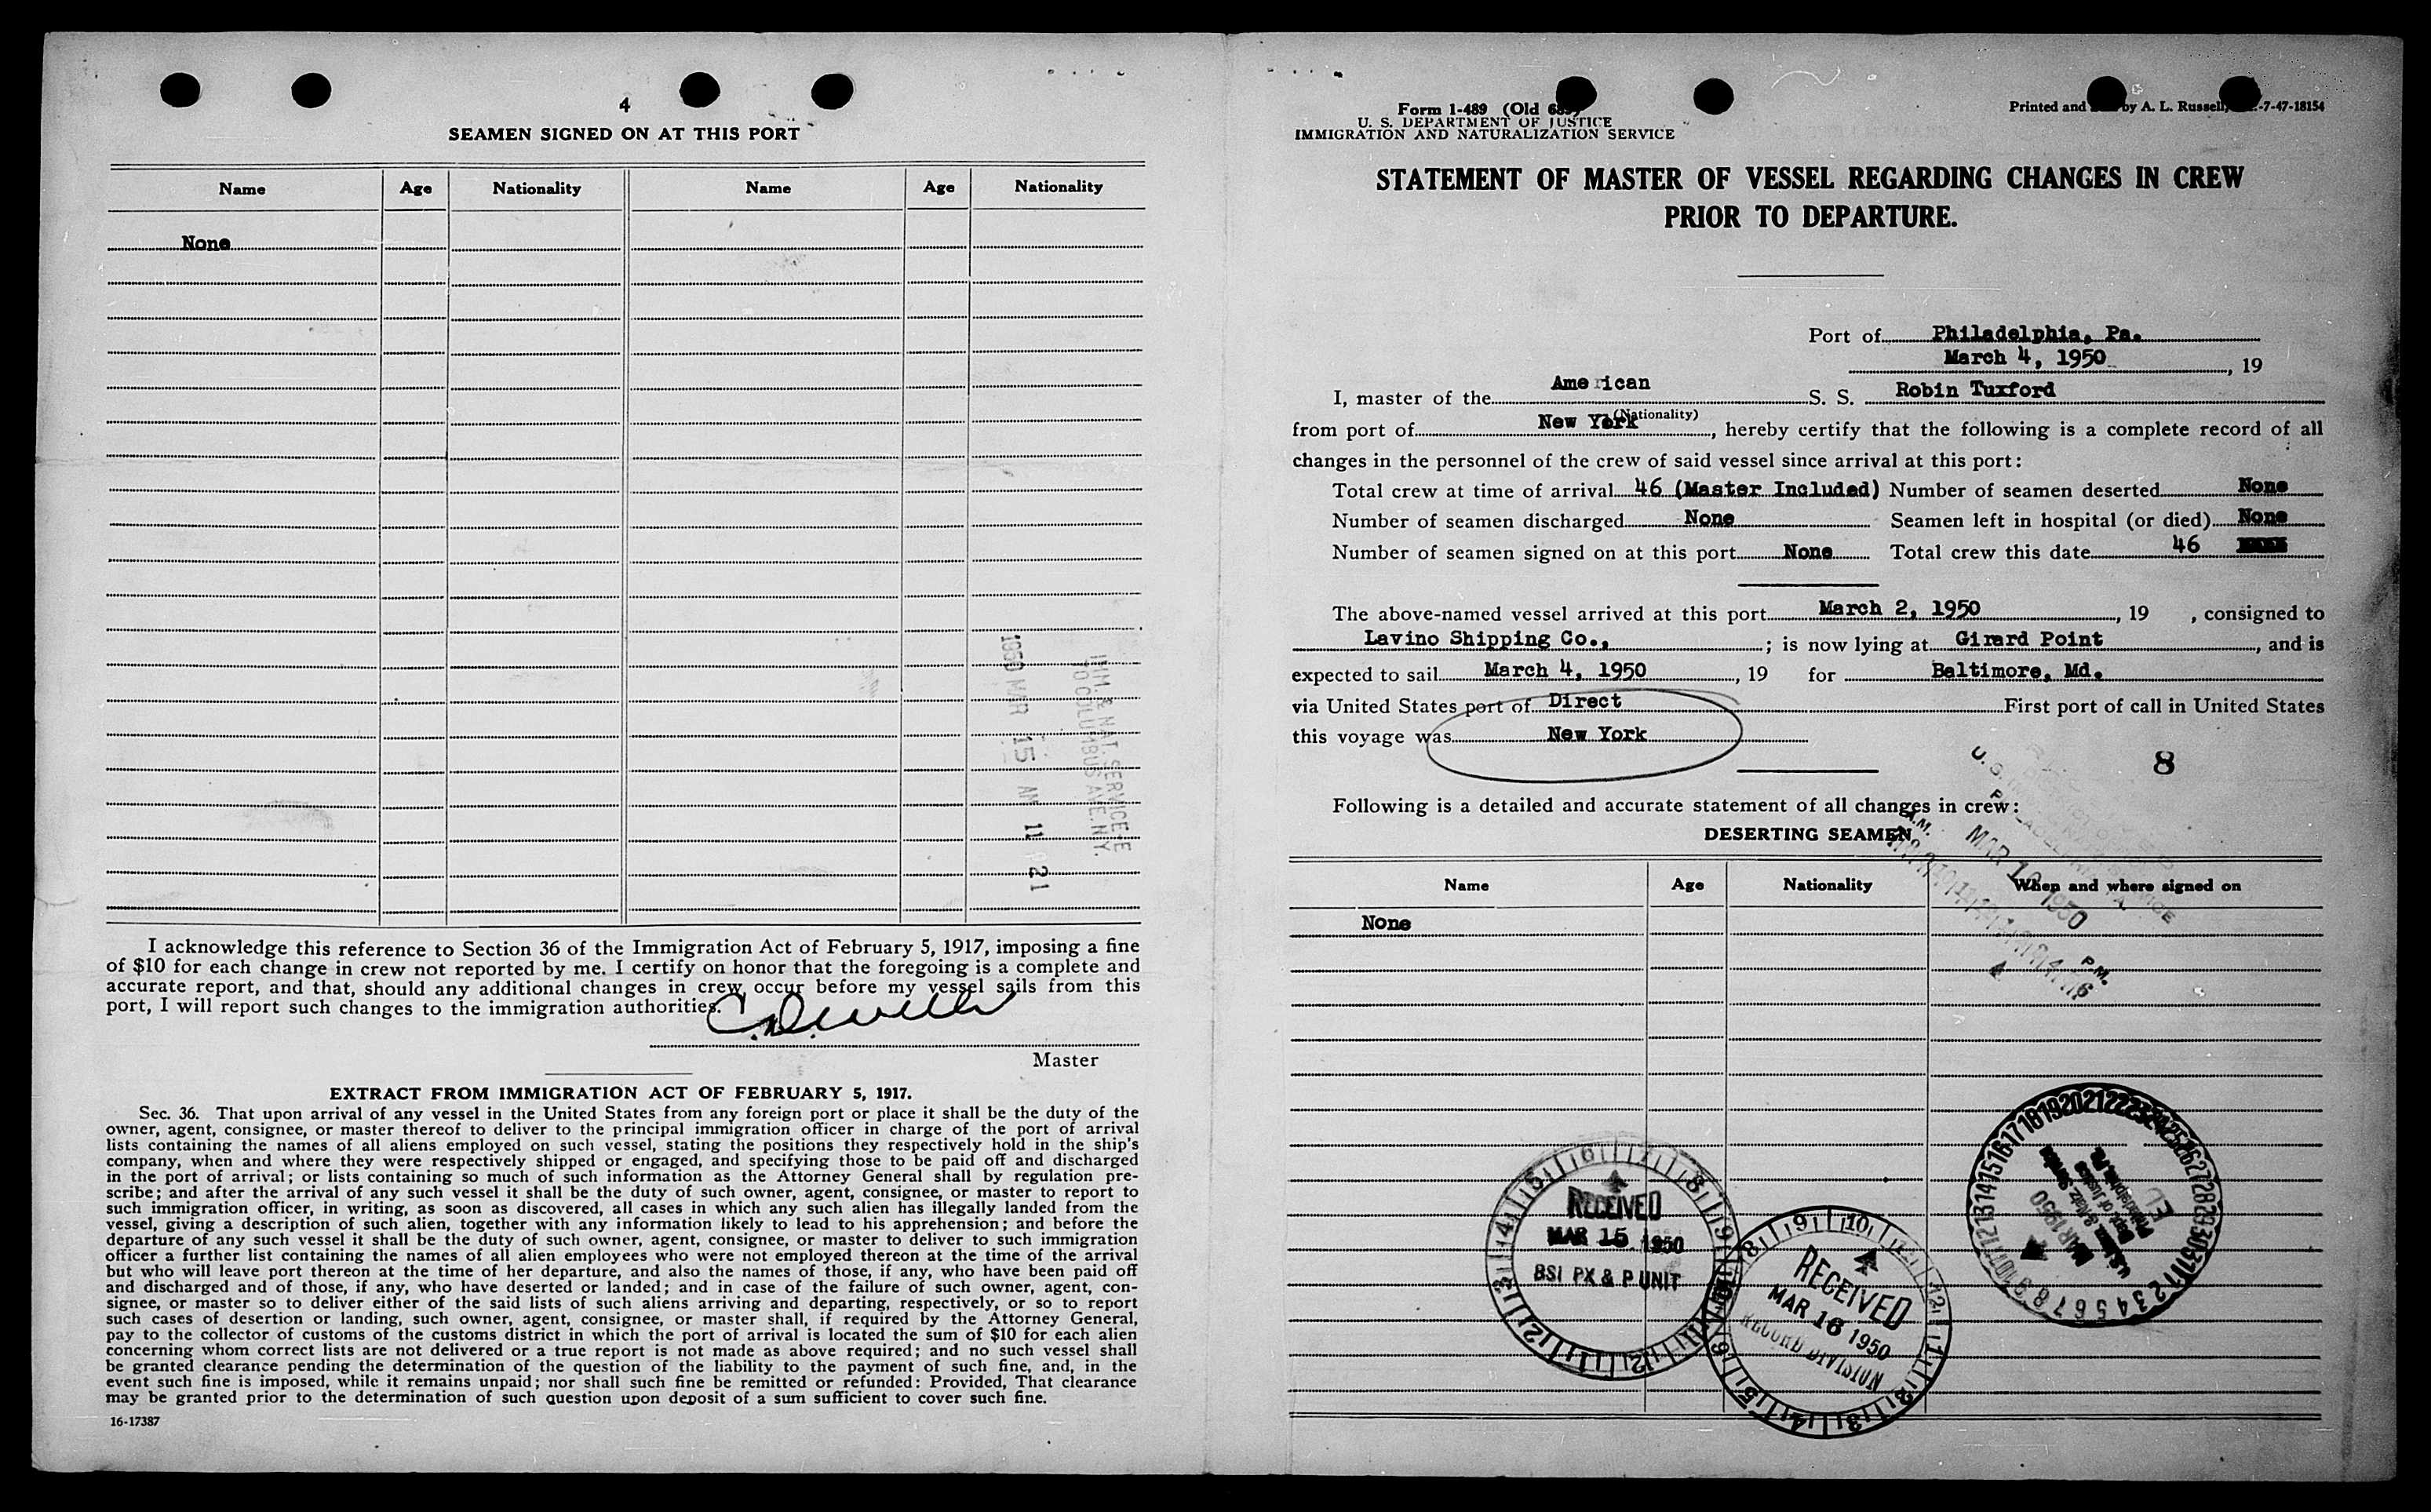 4
SEAMEN SIGNED ON AT THIS PORT
Name Age Nationality Name Age Nationality
None
1950 MAR 15 AM 11 21
IMM. & NAT. SERVICE
70 COLUMBUS AVE. N.Y.
I acknowledge this reference to Section 36 of the Immigration Act of February 5, 1917, imposing a fine
of $10 for each change in crew not reported by me. I certify on honor that the foregoing is a complete and
accurate report, and that, should any additional changes in crew occur before my vessel sails from this
port, I will report such changes to the immigration authorities.
Master
EXTRACT FROM IMMIGRATION ACT OF FEBRUARY 5, 1917.
Sec. 36. That upon arrival of any vessel in the United States from any foreign port or place it shall be the duty of the
owner, agent, consignee, or master thereof to deliver to the principal immigration officer in charge of the port of arrival
lists containing the names of all aliens employed on such vessel, stating the positions they respectively hold in the ship's
company, when and where they were respectively shipped or engaged, and specifying those to be paid off and discharged
in the port of arrival; or lists containing so much of such information as the Attorney General shall by regulation pre-
scribe; and after the arrival of any such vessel it shall be the duty of such owner, agent, consignee, or master to report to
such immigration officer, in writing, as soon as discovered, all cases in which any such alien has illegally landed from the
vessel, giving a description of such alien, together with any information likely to lead to his apprehension; and before the
departure of any such vessel it shall be the duty of such owner, agent, consignee, or master to deliver to such immigration
officer a further list containing the names of all alien employees who were not employed thereon at the time of the arrival
but who will leave port thereon at the time of her departure, and also the names of those, if any, who have been paid off
and discharged and of those, if any, who have deserted or landed; and in case of the failure of such owner, agent, con-
signee, or master so to deliver either of the said lists of such aliens arriving and departing, respectively, or so to report
such cases of desertion or landing, such owner, agent, consignee, or master shall, if required by the Attorney General,
pay to the collector of customs of the customs district in which the port of arrival is located the sum of $10 for each alien
concerning whom correct lists are not delivered or a true report is not made as above required; and no such vessel shall
be granted clearance pending the determination of the question of the liability to the payment of such fine, and, in the
event such fine is imposed, while it remains unpaid; nor shall such fine be remitted or refunded: Provided, That clearance
may be granted prior to the determination of such question upon deposit of a sum sufficient to cover such fine.
16-17387
Form 1-489 (Old
U. S. DEPARTMENT OF JUSTICE
IMMIGRATION AND NATURALIZATION SERVICE
Printed and by A. L. Russell, -7-47-18154
STATEMENT OF MASTER OF VESSEL REGARDING CHANGES IN CREW
PRIOR TO DEPARTURE.
Port of Philadelphia, Pa.
March 4, 1950, 19
I, master of the American S. S. Robin Tuxford
(Nationality)
from port of New York, hereby certify that the following is a complete record of all
changes in the personnel of the crew of said vessel since arrival at this port:
Total crew at time of arrival 46 (Master Included) Number of seamen deserted None
Number of seamen discharged None Seamen left in hospital (or died) None
Number of seamen signed on at this port None Total crew this date 46
The above-named vessel arrived at this port March 2, 1950, 19 , consigned to
Lavino Shipping Co., ; is now lying at Girard Point, and is
expected to sail March 4, 1950, 19 for Baltimore, Md.
via United States port of Direct First port of call in United States
this voyage was New York
8
Following is a detailed and accurate statement of all changes in crew:
DESERTING SEAMEN
A.M. MAR 10 1950 P.M.
Name Age Nationality When and where signed on
None
RECEIVED
MAR 15 1950
BSI PX & P UNIT
RECEIVED
MAR 16 1950
RECORD DIVISION